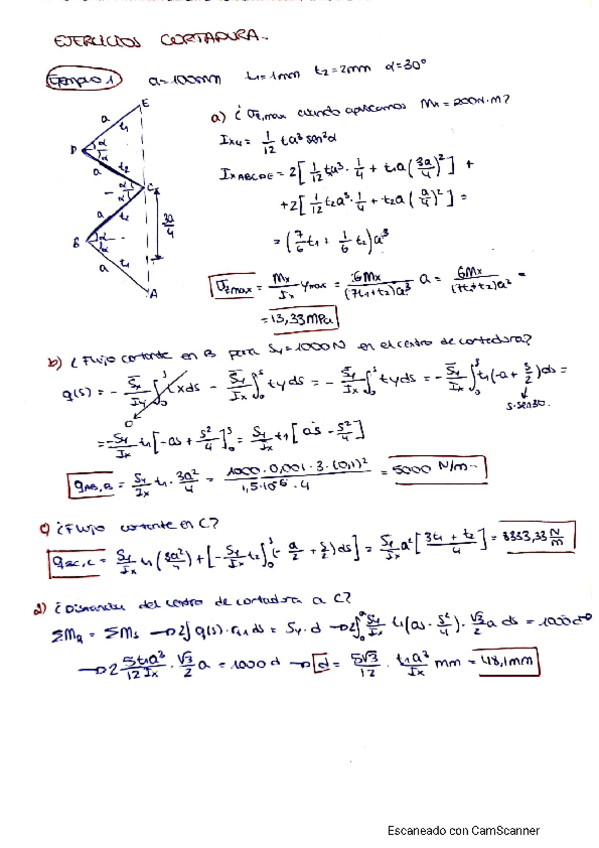 EJERCICIOS CORTADURA.-
Ejemplo 1 a=100mm t₁=1mm t₂=2mm α=30°
E
a t₁
D α α
a t₂
C
a t₂
B α α
a t₁
A
3a/4
a) ¿σz,max cuando aplicamos Mx=200N·m?
Ix4 = 1/12 ta³sen²α
IxABCDE = 2[1/12 t₁a³·1/4 + t₁a(3a/4)²] +
+2[1/12 t₂a³·1/4 + t₂a(a/4)²] =
= (7/6 t₁ + 1/6 t₂)a³
σzmax = Mx/Ix ymax = 6Mx/((7t₁+t₂)a³) a = 6Mx/((7t₁+t₂)a²) =
= 13,33MPa
b) ¿Flujo cortante en B para Sy=1000N en el centro de cortadura?
q(s) = - S̄x/Iy ∫₀ˢ txds - S̄y/Ix ∫₀ˢ tyds = - S̄y/Ix ∫₀ˢ tyds = - S̄y/Ix ∫₀ˢ t₁(-a+s/2)ds =
0 s·sen30.
= -Sy/Ix t₁[-as + s²/4]₀ˢ = Sy/Ix t₁[as - s²/4]
qAB,B = Sy/Ix t₁·3a²/4 = 1000·0,001·3·(0,1)²/1,5·10⁻⁶·4 = 5000 N/m
c) ¿Flujo cortante en C?
qBC,C = Sy/Ix t₁(3a²/4) + [-Sy/Ix t₂∫₀ˢ(-a/2 + s/2)ds] = Sy/Ix a²[3t₁+t₂/4] = 8333,33 N/m
d) ¿Distancia del centro de cortadura a C?
ΣMq = ΣMs → 2∫q(s)·r₁₁ds = Sy·d → 2∫₀ᵃ Sy/Ix t₁(as - s²/4)·√3/2 a ds = 1000d
→ 2 5t₁a³/12Ix · √3/2 a = 1000d → d = 5√3/12 · t₁a³/Ix mm = 48,1mm
Escaneado con CamScanner